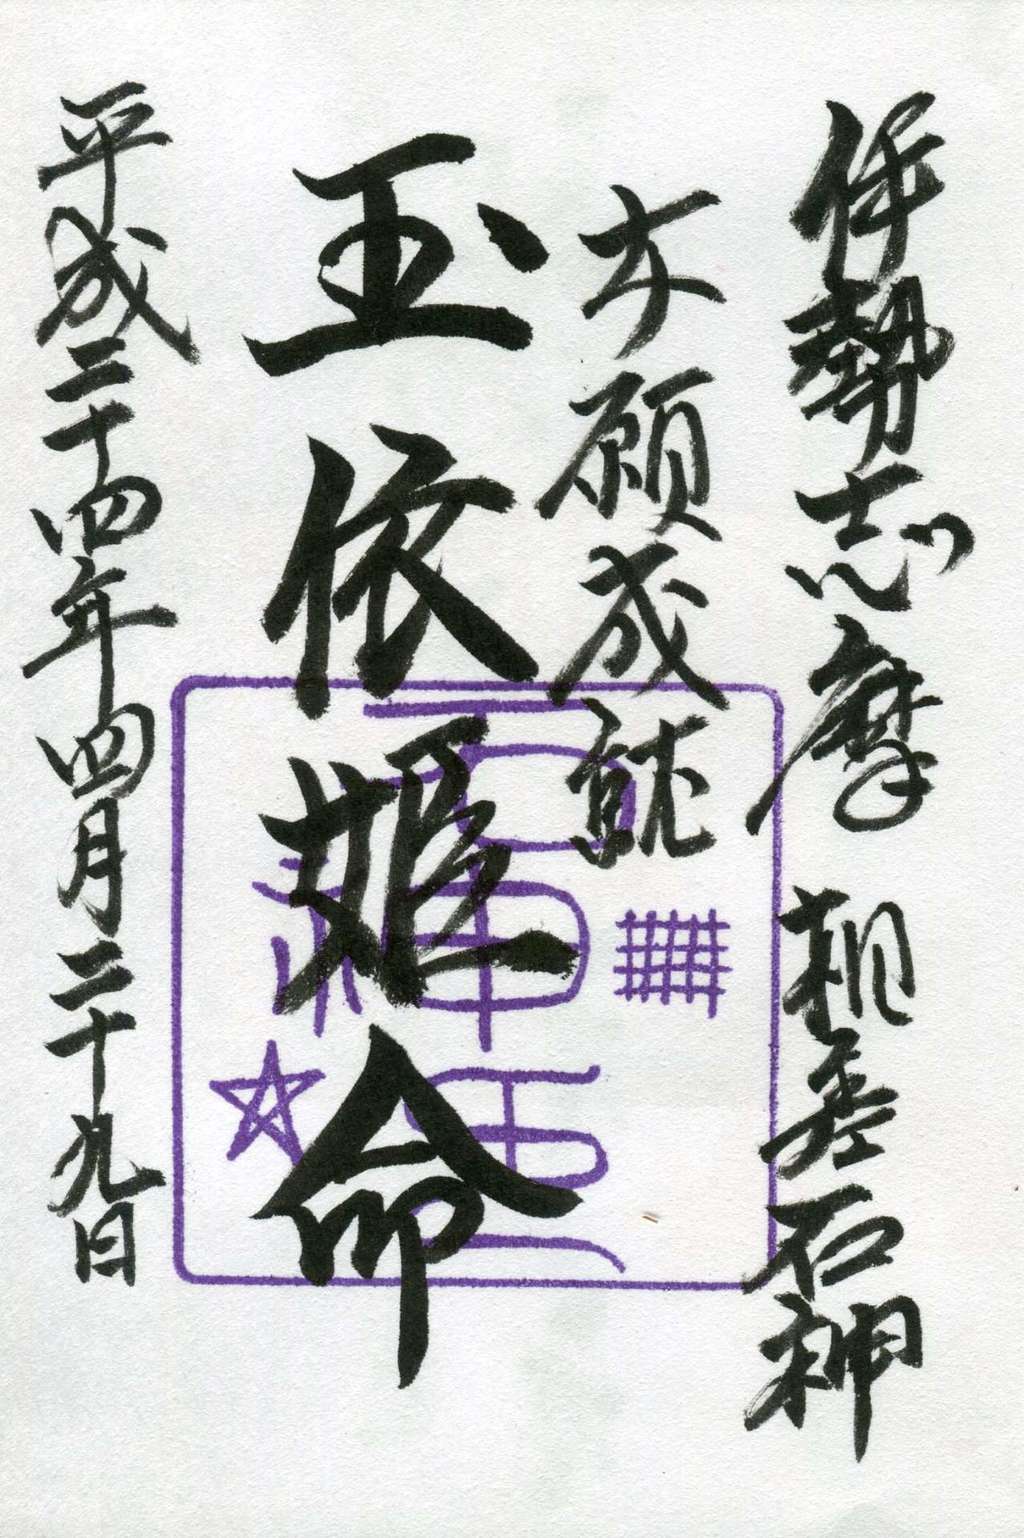 伊勢志摩 相差石神
女願成就
玉依姫命
石神王
平成二十四年四月二十九日